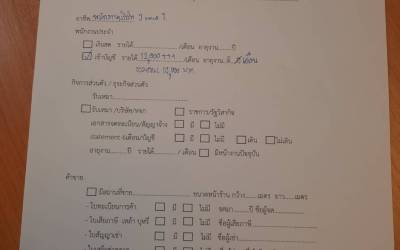 อาชีพ พนักงานบริษัท
พนักงานประจำ
เงินสด รายได้ /เดือน อายุงาน ปี
เข้าบัญชี รายได้ 12,000 +++ /เดือน อายุงาน เดือน
กิจการส่วนตัว / ธุรกิจส่วนตัว
รับเหมา
รับเหมา /บริษัท/หจก ราชการ/รัฐวิสาหกิจ
เอกสารจดทะเบียน/สัญญาจ้าง มี ไม่มี
statement 6เดือน/บัญชี มี ไม่มี เดิน ไม่เดิน
อายุงาน ปี รายได้ / เดือน มีหน้างานปัจจุบัน
ค้าขาย
มีสถานที่ขาย ขนาดหน้าร้าน กว้าง เมตร ยาว เมตร
- ใบทะเบียนการค้า มี ไม่มี จดมา ปี ชื่อผู้จด
- ใบเสียภาษี เหล้า บุหรี่ มี ไม่มี ชื่อผู้เสียภาษี
- ใบสัญญาเช่า มี ไม่มี ชื่อผู้เช่า